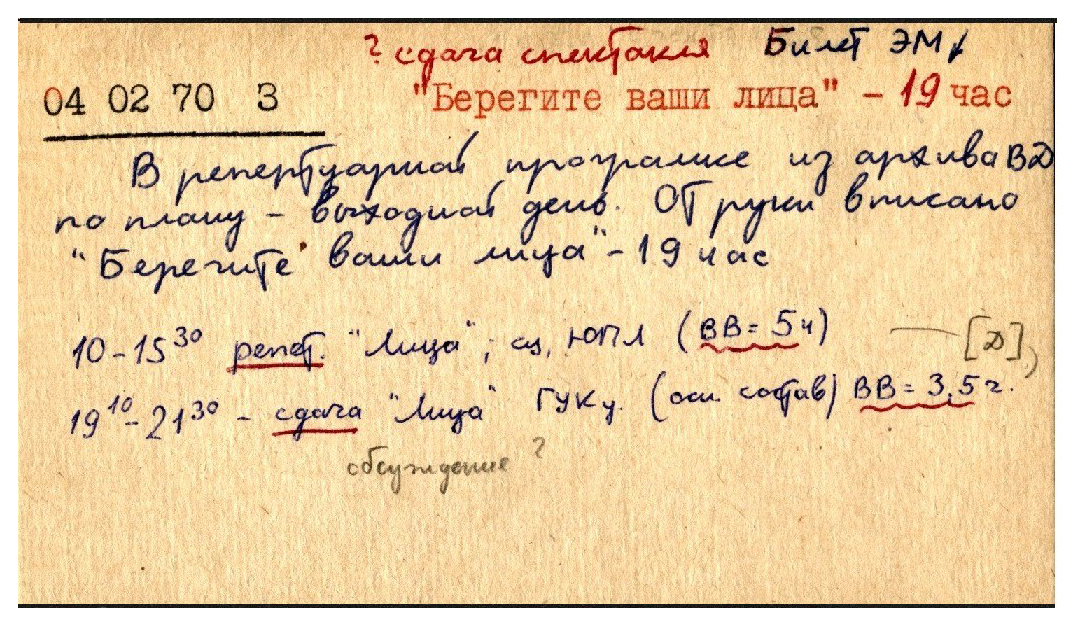 ? сдача спектакля Билет ЭМ
04 02 70 3 "Берегите ваши лица" - 19 час
В репертуарной программке из архива ВД
по плану - выходной день. От руки вписано
"Берегите ваши лица" - 19 час
10-15³⁰ репет. "Лица", сц. ЮПЛ (ВВ = 5ч) [Д]
19¹⁰-21³⁰ - сдача "Лица" ГУКу. (осн. состав) ВВ = 3,5 ч.
обсуждение ?